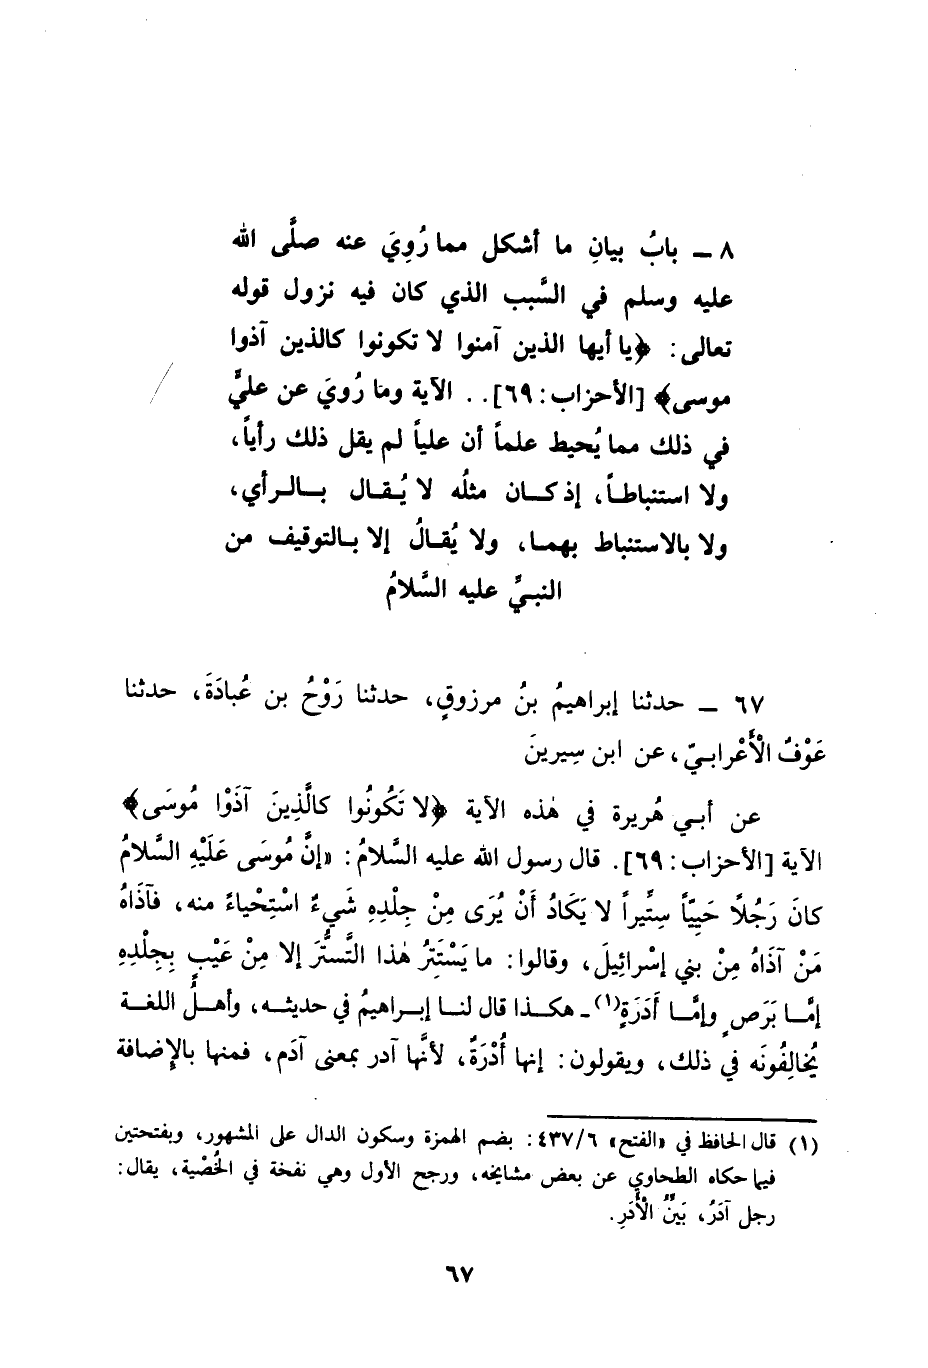 ٨ ـ بابُ بيانِ ما أشكل مما رُوِيَ عنه صلَّى الله
عليه وسلم في السَّبب الذي كان فيه نزول قوله
تعالى: ﴿يا أيها الذين آمنوا لا تكونوا كالذين آذوا
موسى﴾ [الأحزاب: ٦٩]. . الآية وما رُويَ عن عليٍّ
في ذلك مما يُحيط علماً أن علياً لم يقل ذلك رأياً،
ولا استنباطاً، إذ كان مثلُه لا يُقال بالرأي،
ولا بالاستنباط بهما، ولا يُقالُ إلا بالتوقيف من
النبيِّ عليه السَّلامُ
٦٧ ـ حدثنا إبراهيمُ بنُ مرزوقٍ، حدثنا رَوْحُ بن عُبادَةَ، حدثنا
عَوْفٌ الْأَعْرابيّ، عن ابن سِيرينَ
عن أبي هُريرة في هٰذه الآية ﴿لا تَكُونُوا كالَّذِينَ آذَوْا مُوسَى﴾
الآية [الأحزاب: ٦٩]. قال رسول الله عليه السَّلامُ: «إنَّ مُوسَى عَلَيْهِ السَّلامُ
كانَ رَجُلًا حَيِيّاً سِتِّيراً لا يَكَادُ أَنْ يُرَى مِنْ جِلدِهِ شَيءٌ اسْتِحْياءً منه، فآذَاهُ
مَنْ آذَاهُ مِنْ بني إسْرائِيلَ، وقالوا: ما يَسْتَتِرُ هٰذا التَّستُّرَ إلا مِنْ عَيْبٍ بِجِلْدِهِ
إمَّا بَرَصٍ وإمَّا أَدَرَةٍ(١) ـ هكذا قال لنا إبراهيمُ في حديثه، وأهلُ اللغة
يُخالِفُونَه في ذلك، ويقولون: إنها أُدْرَةٌ، لأنَّها آدر بمعنى آدَم، فمنها بالإضافة
(١) قال الحافظ في «الفتح» ٤٣٧/٦: بضم الهمزة وسكون الدال على المشهور، وبفتحتين
فيما حكاه الطحاوي عن بعض مشايخه، ورجح الأول وهي نفخة في الخُصْية، يقال:
رجل آدَرُ، بَيِّنُ الْأَدَرِ.
٦٧